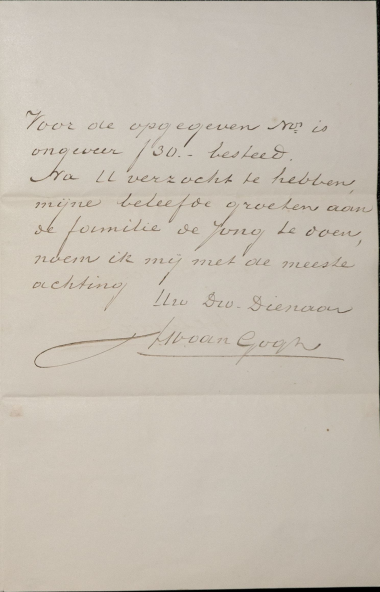 Voor de opgegeven Nos is
ongeveer f 30.- besteed.
Na U verzocht te hebben,
mijne beleefde groeten aan
de familie de Jong te doen,
noem ik mij met de meeste
achting
Uw Dw. Dienaar
van Gogh